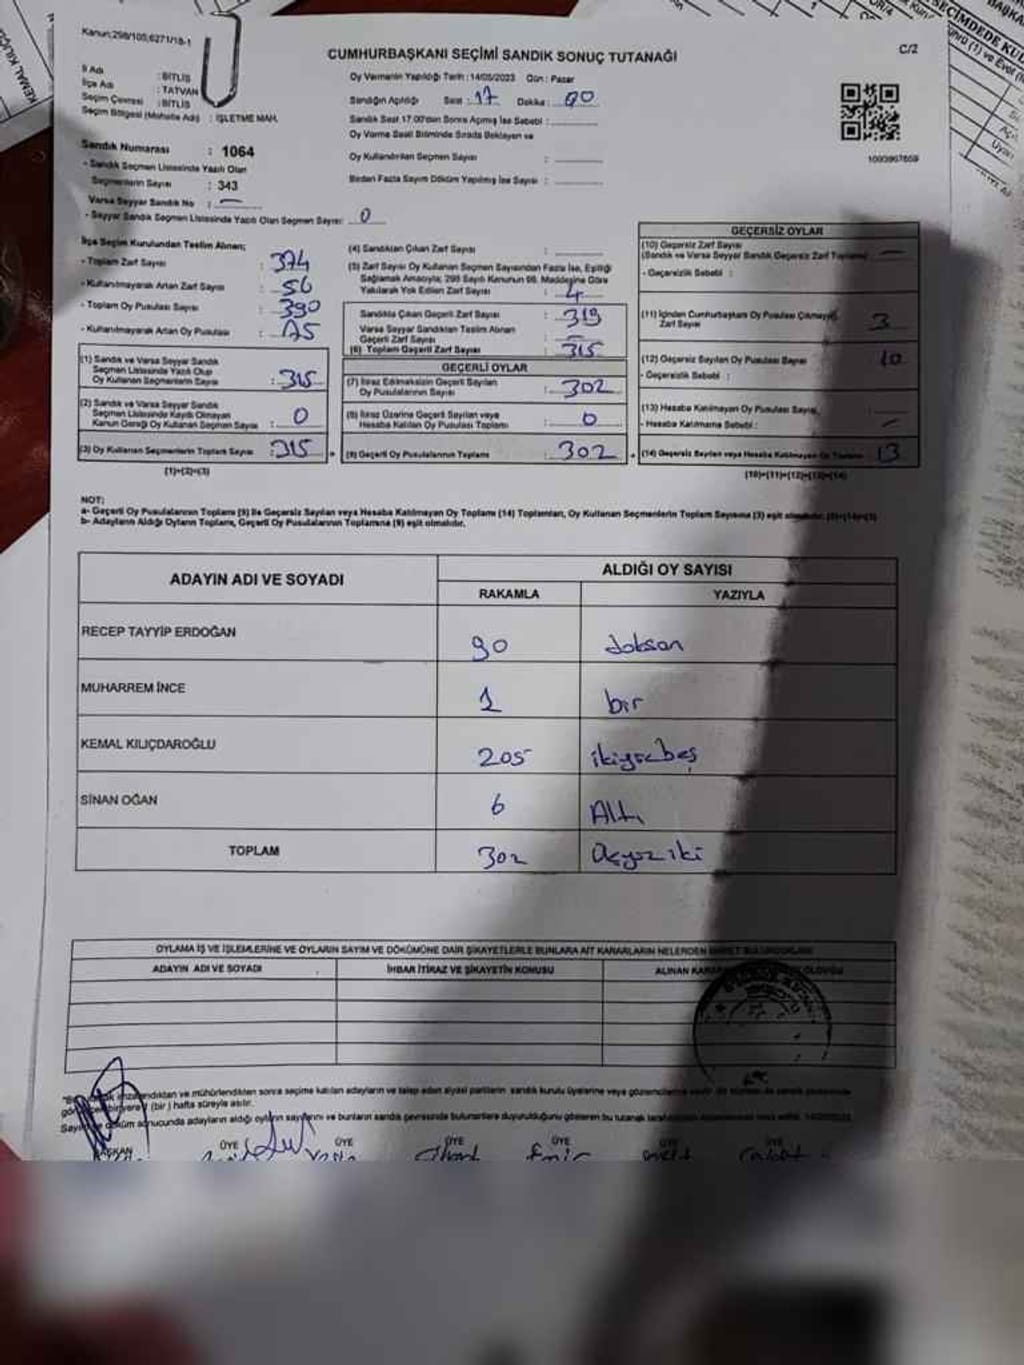 Kanun:298/105,6271/18-1
C/2
CUMHURBAŞKANI SEÇİMİ SANDIK SONUÇ TUTANAĞI
İl Adı : BİTLİS
İlçe Adı : TATVAN
Seçim Çevresi : BİTLİS
Seçim Bölgesi (Mahalle Adı) : İŞLETME MAH.
Oy Vermenin Yapıldığı Tarih : 14/05/2023 Gün : Pazar
Sandığın Açıldığı Saat : 17 Dakika : 00
Sandık Saat 17.00'den Sonra Açılmış İse Sebebi :
Oy Verme Saati Bitiminde Sırada Bekleyen ve
Oy Kullandırılan Seçmen Sayısı :
Birden Fazla Sayım Döküm Yapılmış İse Sayısı :
1000967659
Sandık Numarası : 1064
- Sandık Seçmen Listesinde Yazılı Olan
Seçmenlerin Sayısı : 343
Varsa Seyyar Sandık No : —
- Seyyar Sandık Seçmen Listesinde Yazılı Olan Seçmen Sayısı: 0
İlçe Seçim Kurulundan Teslim Alınan;
- Toplam Zarf Sayısı : 374
- Kullanılmayarak Artan Zarf Sayısı : 56
- Toplam Oy Pusulası Sayısı : 390
- Kullanılmayarak Artan Oy Pusulası : 75
(1) Sandık ve Varsa Seyyar Sandık
Seçmen Listesinde Yazılı Olup
Oy Kullanan Seçmenlerin Sayısı : 315
(2) Sandık ve Varsa Seyyar Sandık
Seçmen Listesinde Kaydı Olmayan
Kanun Gereği Oy Kullanan Seçmen Sayısı : 0
(3) Oy Kullanan Seçmenlerin Toplam Sayısı : 315
(1)+(2)=(3)
(4) Sandıktan Çıkan Zarf Sayısı :
(5) Zarf Sayısı Oy Kullanan Seçmen Sayısından Fazla İse, Eşitliği
Sağlamak Amacıyla; 298 Sayılı Kanunun 98. Maddesine Göre
Yakılarak Yok Edilen Zarf Sayısı : 4
Sandıkta Çıkan Geçerli Zarf Sayısı : 319
Varsa Seyyar Sandıktan Teslim Alınan
Geçerli Zarf Sayısı : —
(6) Toplam Geçerli Zarf Sayısı : 315
GEÇERLİ OYLAR
(7) İtiraz Edilmeksizin Geçerli Sayılan
Oy Pusulalarının Sayısı : 302
(8) İtiraz Üzerine Geçerli Sayılan veya
Hesaba Katılan Oy Pusulası Toplamı : 0
(9) Geçerli Oy Pusulalarının Toplamı : 302
GEÇERSİZ OYLAR
(10) Geçersiz Zarf Sayısı
(Sandık ve Varsa Seyyar Sandık Geçersiz Zarf Toplamı) —
- Geçersizlik Sebebi :
(11) İçinden Cumhurbaşkanı Oy Pusulası Çıkmayan
Zarf Sayısı 3
(12) Geçersiz Sayılan Oy Pusulası Sayısı 10
- Geçersizlik Sebebi :
(13) Hesaba Katılmayan Oy Pusulası Sayısı,
- Hesaba Katılmama Sebebi : —
(14) Geçersiz Sayılan veya Hesaba Katılmayan Oy Toplamı 13
(10)+(11)+(12)+(13)=(14)
NOT:
a- Geçerli Oy Pusulalarının Toplamı (9) İle Geçersiz Sayılan veya Hesaba Katılmayan Oy Toplamı (14) Toplamları, Oy Kullanan Seçmenlerin Toplam Sayısına (3) eşit olmalıdır.
b- Adayların Aldığı Oyların Toplamı, Geçerli Oy Pusulalarının Toplamına (9) eşit olmalıdır.
ADAYIN ADI VE SOYADI
ALDIĞI OY SAYISI
RAKAMLA YAZIYLA
RECEP TAYYİP ERDOĞAN 90 doksan
MUHARREM İNCE 1 bir
KEMAL KILIÇDAROĞLU 205 ikiyüzbeş
SİNAN OĞAN 6 Altı
TOPLAM 302 üçyüziki
OYLAMA İŞ VE İŞLEMLERİNE VE OYLARIN SAYIM VE DÖKÜMÜNE DAİR ŞİKAYETLERLE BUNLARA AİT KARARLARIN NELERDEN
ADAYIN ADI VE SOYADI İHBAR İTİRAZ VE ŞİKAYETİN KONUSU ALINAN
imzalandıktan ve mühürlendikten sonra seçime katılan adayların ve talep eden siyasi partilerin sandık kurulu üyelerine veya
(bir) hafta süreyle asılır.
döküm sonucunda adayların aldığı oyların sayılarını ve bunların sandık çevresinde bulunanlara duyurulduğunu gösteren bu tutanak
BAŞKAN ÜYE ÜYE ÜYE ÜYE ÜYE ÜYE